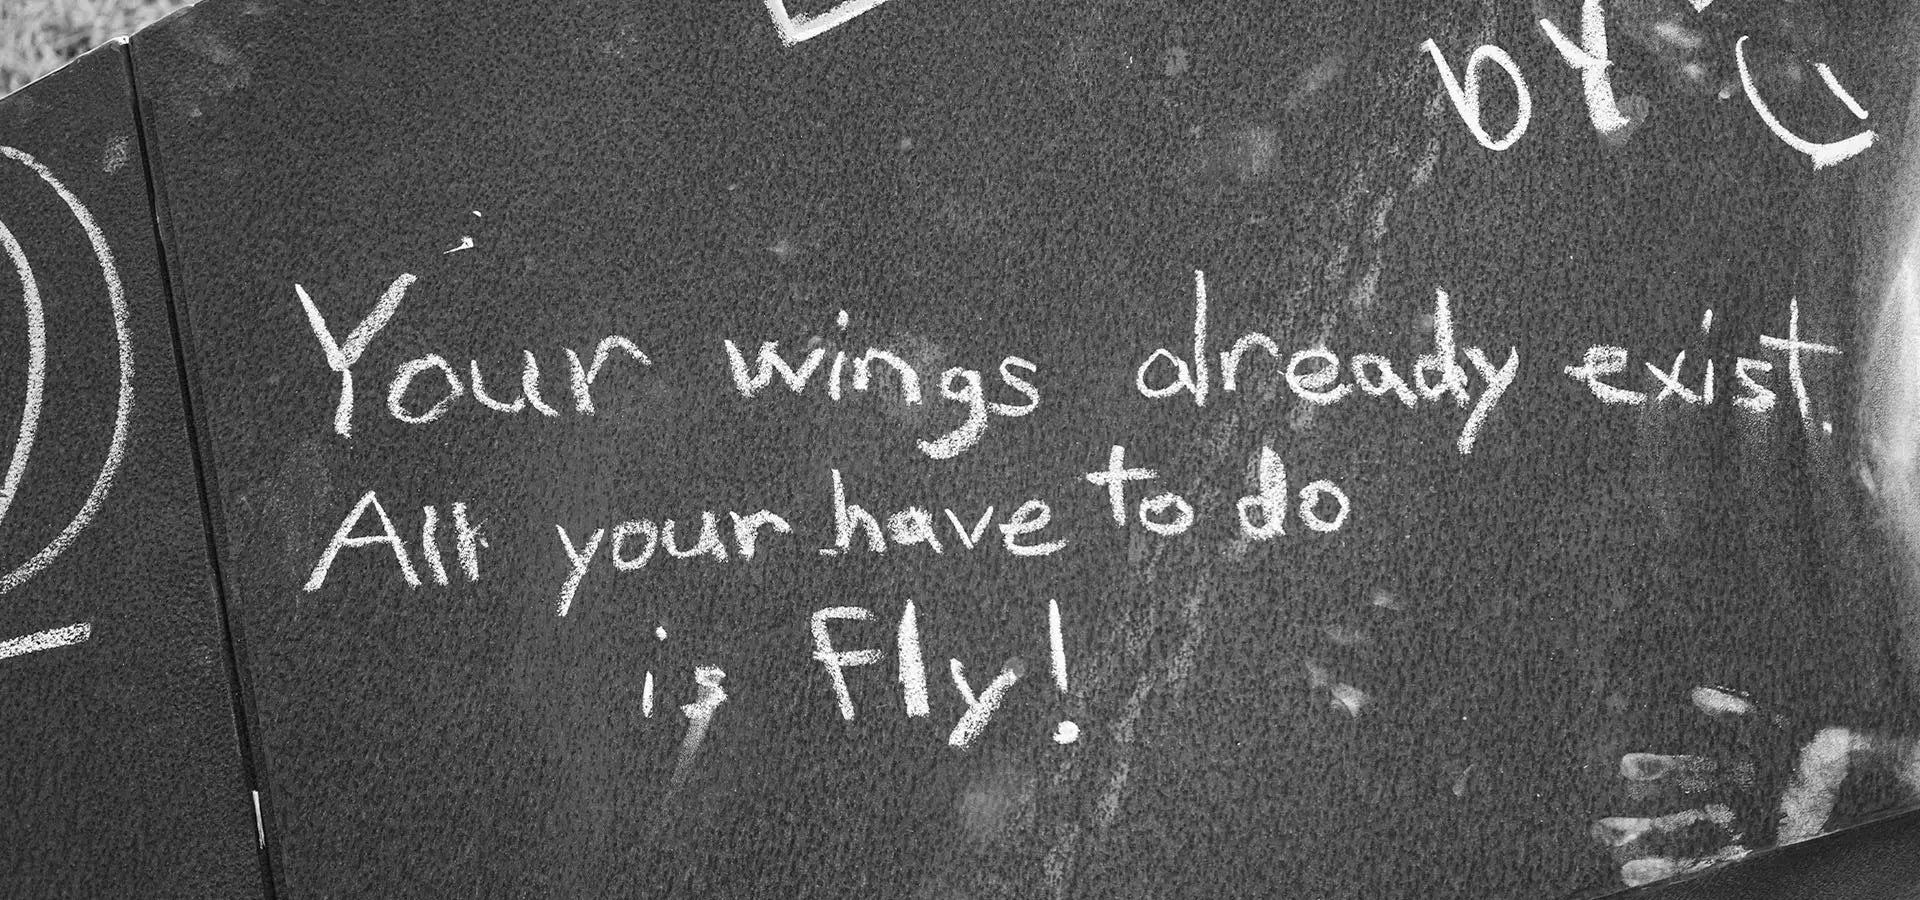 by
Your wings already exist.
All your have to do
is Fly!